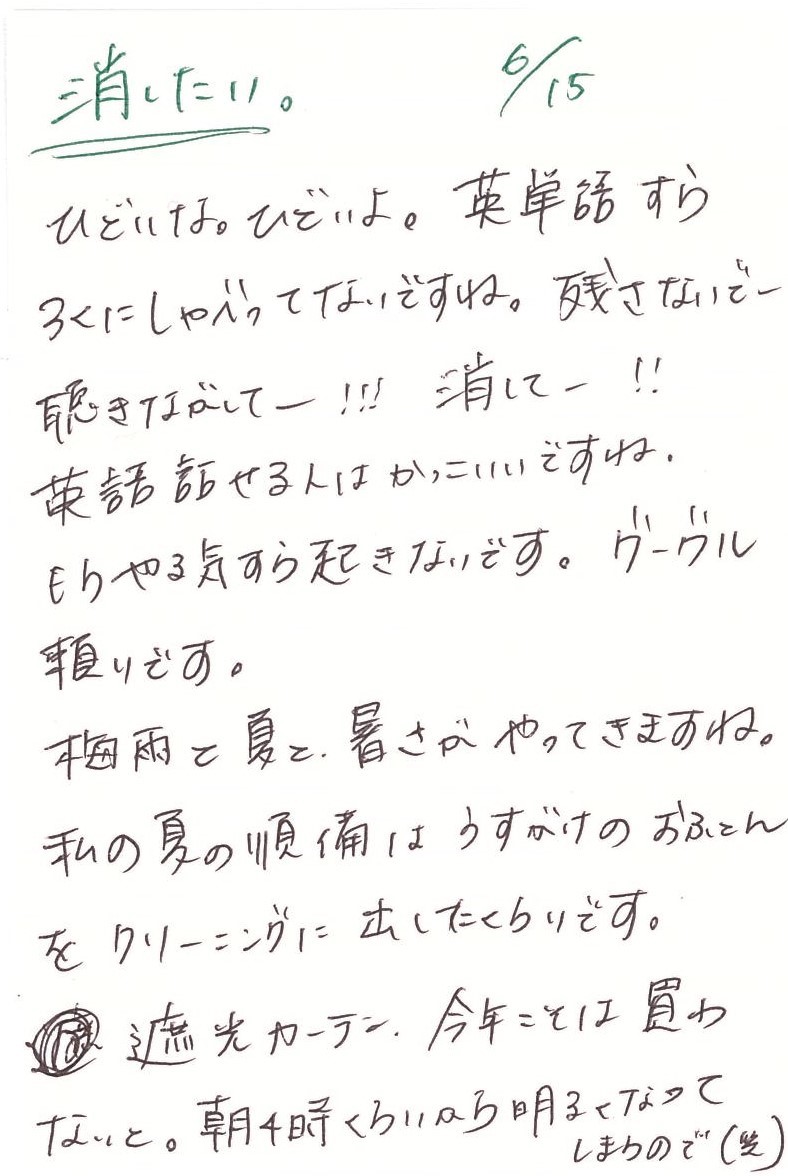 消したい。 6/15
ひどいな。ひどいよ。英単語すら
ろくにしゃべってないですね。残さないでー
聴きながしてー!!! 消してー!!
英語話せる人はかっこいいですね.
もうやる気すら起きないです。グーグル
頼りです。
梅雨と夏と.暑さがやってきますね。
私の夏の順備はうすがけのおふとん
をクリーニングに出したくらいです。
遮光カーテン.今年こそは買わ
ないと。朝4時くらいから明るくなって
しまうので(笑)